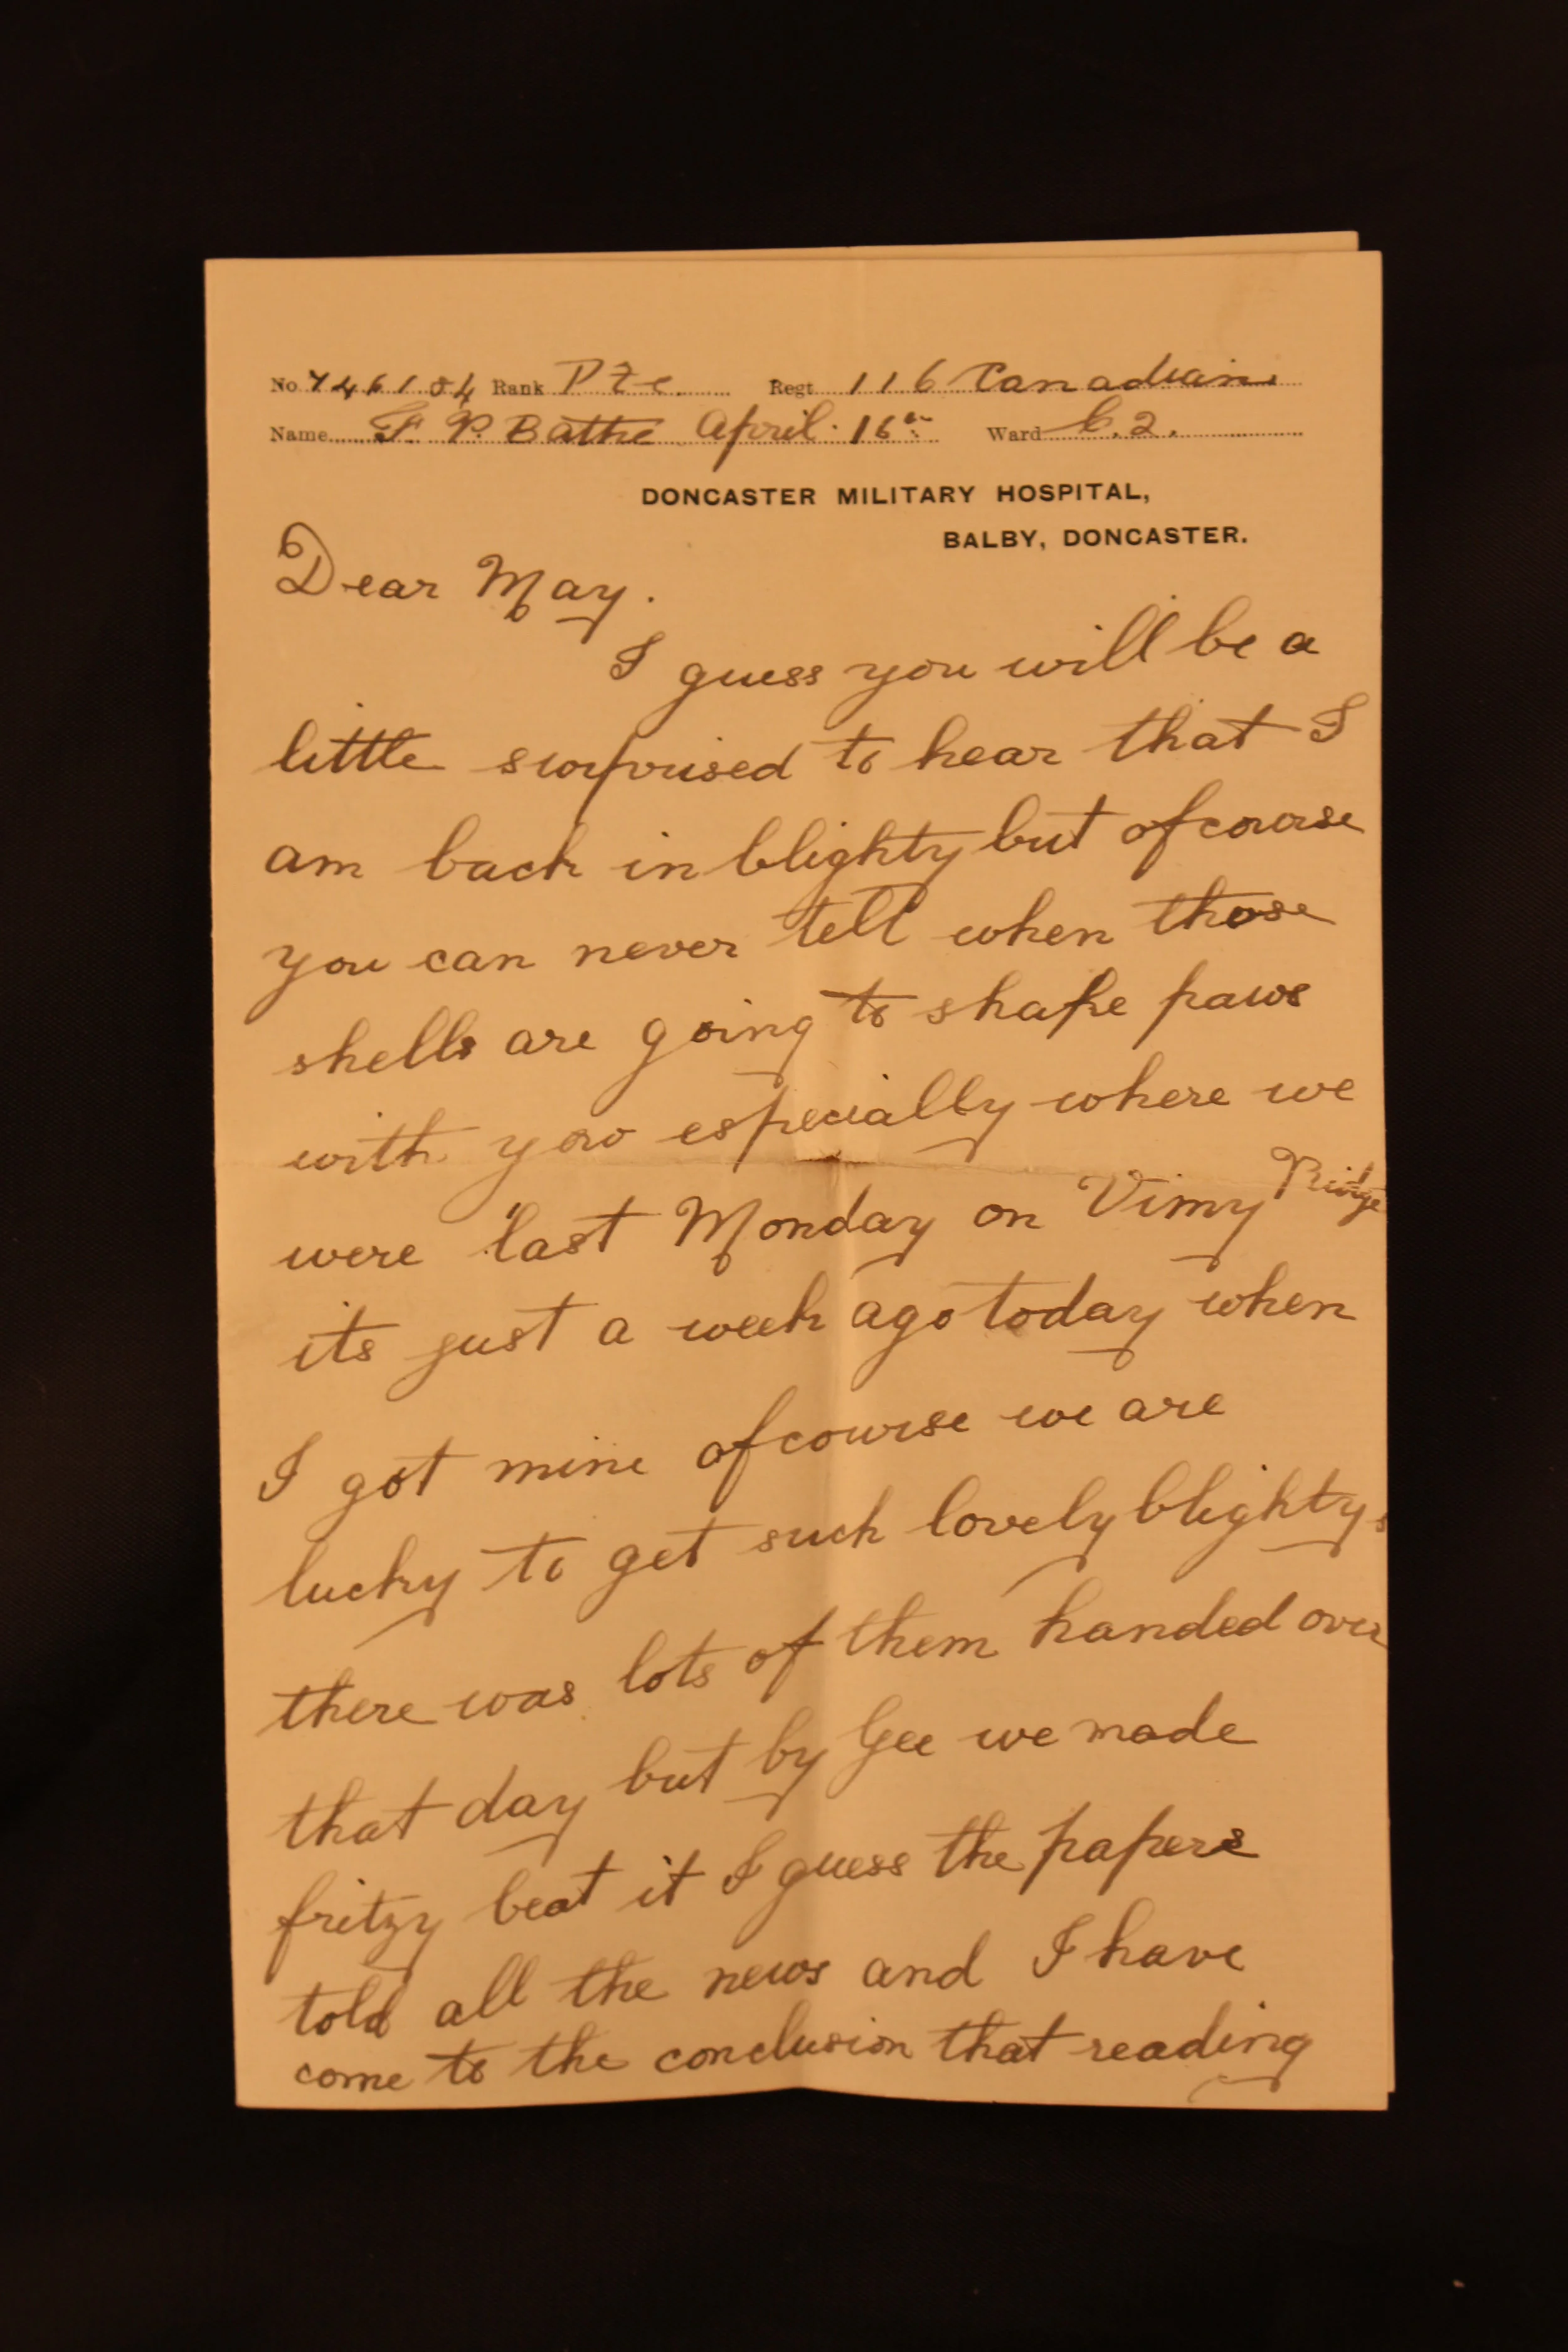 No 746184 Rank Pte. Regt 116 Canadians
Name F. P. Bathe April 16th Ward C.2.
DONCASTER MILITARY HOSPITAL,
BALBY, DONCASTER.
Dear May.
I guess you will be a
little surprised to hear that I
am back in blighty but ofcourse
you can never tell when those
shells are going to shake paws
with you especially where we
were last Monday on Vimy Ridge
its just a week ago today when
I got mine ofcourse we are
lucky to get such lovely blightys
there was lots of them handed over
that day but by Gee we made
fritzy beat it I guess the papers
told all the news and I have
come to the conclusion that reading